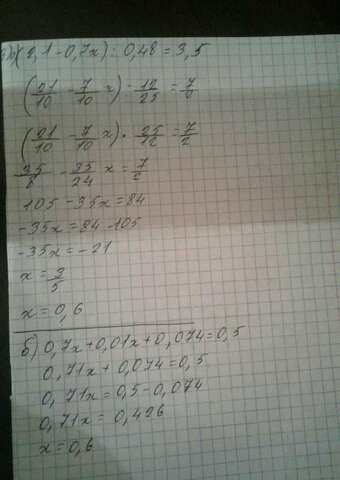 а) (2,1-0,7x) : 0,48 = 3,5
(21/10 - 7/10 x) : 12/25 = 7/2
(21/10 - 7/10 x) · 25/12 = 7/2
35/8 - 35/24 x = 7/2
105 - 35x = 84
-35x = 84-105
-35x = -21
x = 3/5
x = 0,6
б) 0,7x+0,01x+0,074=0,5
0,71x+0,074=0,5
0,71x=0,5-0,074
0,71x = 0,426
x=0,6